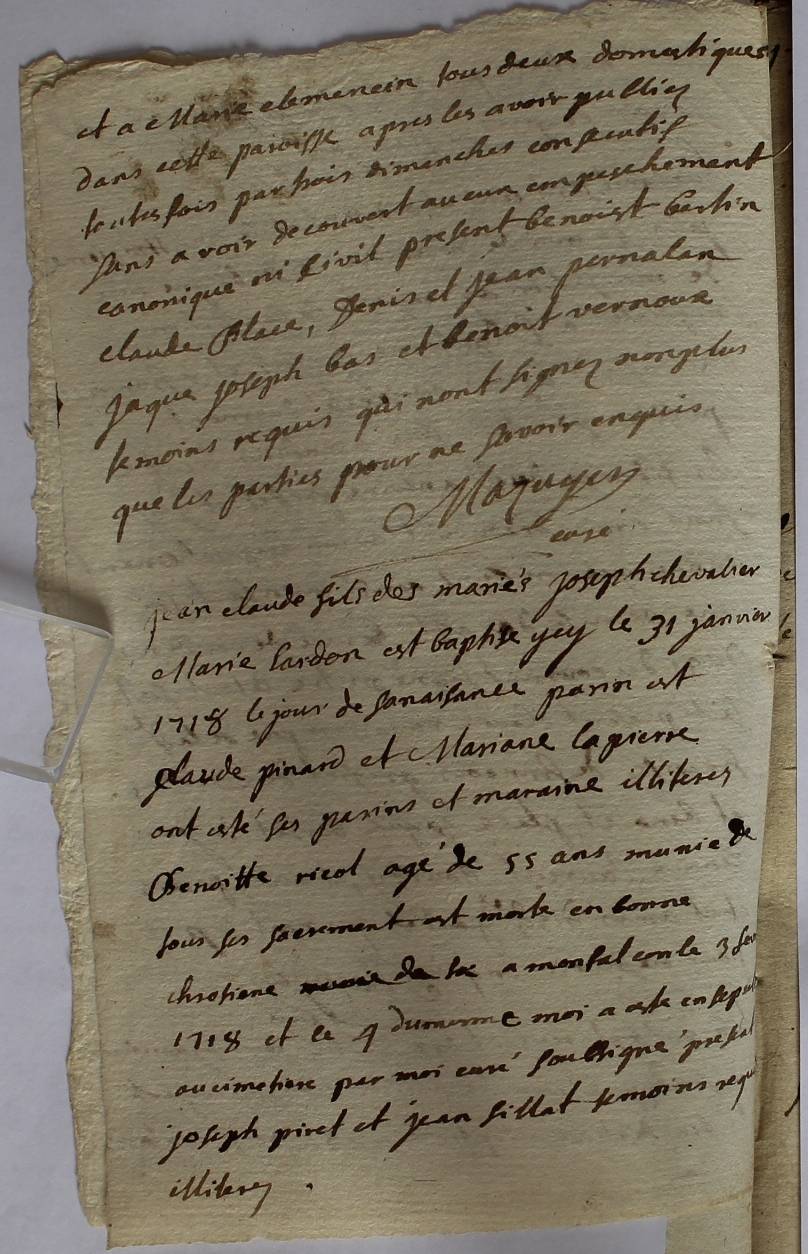 et a Marie clemencin tous deux domestiques
dans cette paroisse apres les avoir publiez
toutesfois par trois dimenches consecutif
sans avoir decouvert aucun empeschement
canonique ni sivil present benoist bertin
claude Place, Denis et jean pernalan
jaque joseph bas et benoit vernoux
temoins requis qui nont signez nonplus
que les parties pour ne savoir enquis
Mazuyer
curé
jean claude fils des mariés joseph chevalier
Marie lardon est baptise ycy le 31 janvier
1718 le jour de sa naisance parin est
claude pinard et Mariane lapierre
ont esté ses parins et maraine illiteres
Benoitte ricol agé de 55 ans munie de
tous ses sacrement est morte en bonne
chrotiene a monfalcon le 3 fev
1718 et le 4 du meme moi a este ensepul
au cimetiere par moi curé soussigné presta
joseph piret et jean fillat temoins requ
illiterez .